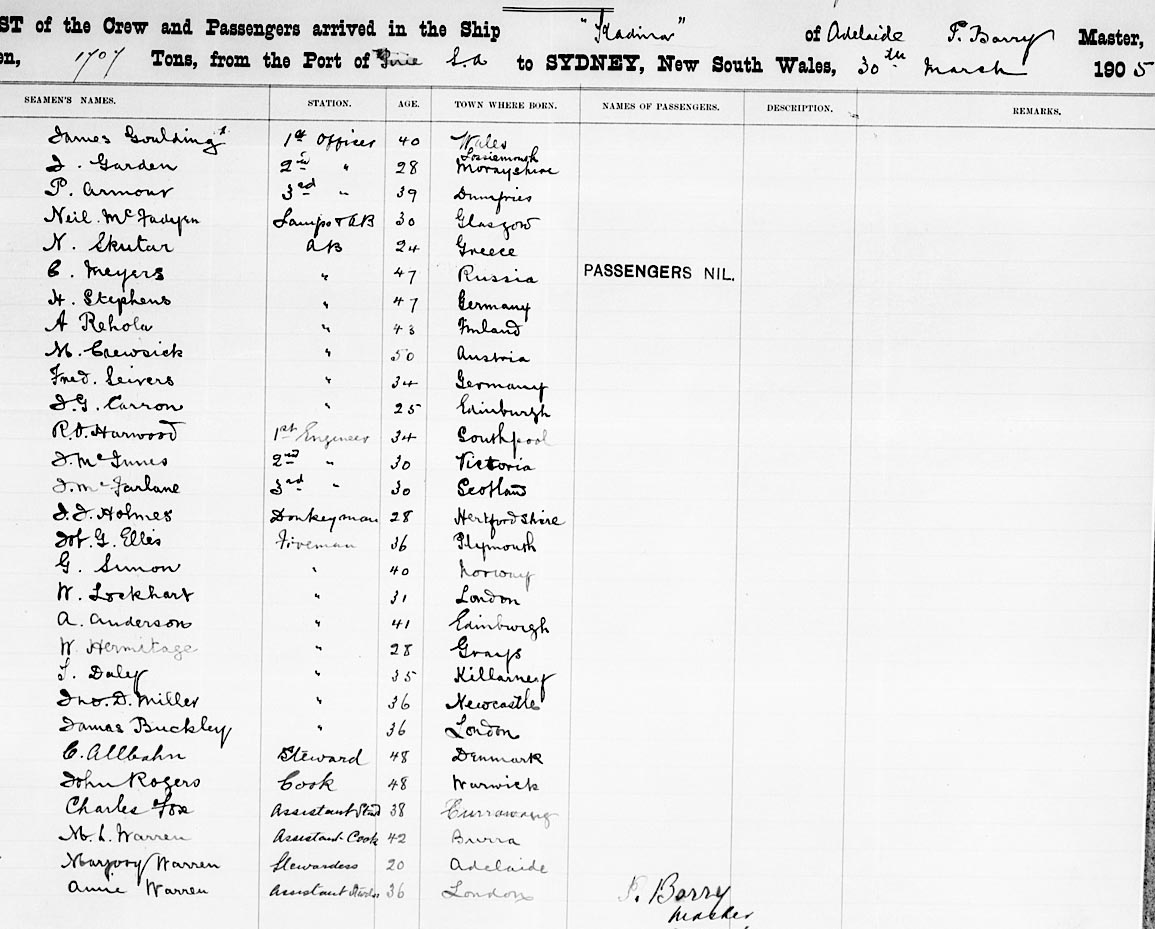 ST of the Crew and Passengers arrived in the Ship "Kadina" of Adelaide P. Barry Master,
en, 1707 Tons, from the Port of Pirie S.a to SYDNEY, New South Wales, 30th March 1905
SEAMEN'S NAMES. STATION. AGE. TOWN WHERE BORN. NAMES OF PASSENGERS. DESCRIPTION. REMARKS.
James Goulding 1st Officer 40 Wales
J. Garden 2nd " 28 Lossiemouth Morayshire
P. Armour 3rd " 39 Dumfries
Neil McFadyen Lamps & AB 30 Glasgow
N. Skutar AB 24 Greece
C. Meyers " 47 Russia PASSENGERS NIL.
H. Stephens " 47 Germany
A Rehola " 43 Finland
M. Crewsick " 50 Austria
Fred. Seivers " 34 Germany
J.G. Carron " 25 Edinburgh
Harwood 1st Engineer 34 Southpool
J. McInnes 2nd " 30 Victoria
J. McFarlane 3rd " 30 Scotland
J.J. Holmes Donkeyman 28 Hertfordshire
G. Ellis Fireman 36 Plymouth
G. Simon " 40 Norway
W. Lockhart " 31 London
A. Anderson " 41 Edinburgh
W. Hermitage " 28 Grays
T. Daley " 35 Killarney
Jno. D. Miller " 36 Newcastle
James Buckley " 36 London
C. Allbahn Steward 48 Denmark
John Rogers Cook 48 Warwick
Charles Fox Assistant Stwd 38 Currawang
M. L. Warren Assistant Cook 42 Burra
Marjory Warren Stewardess 20 Adelaide
Annie Warren Assistant 36 London
P. Barry
Master